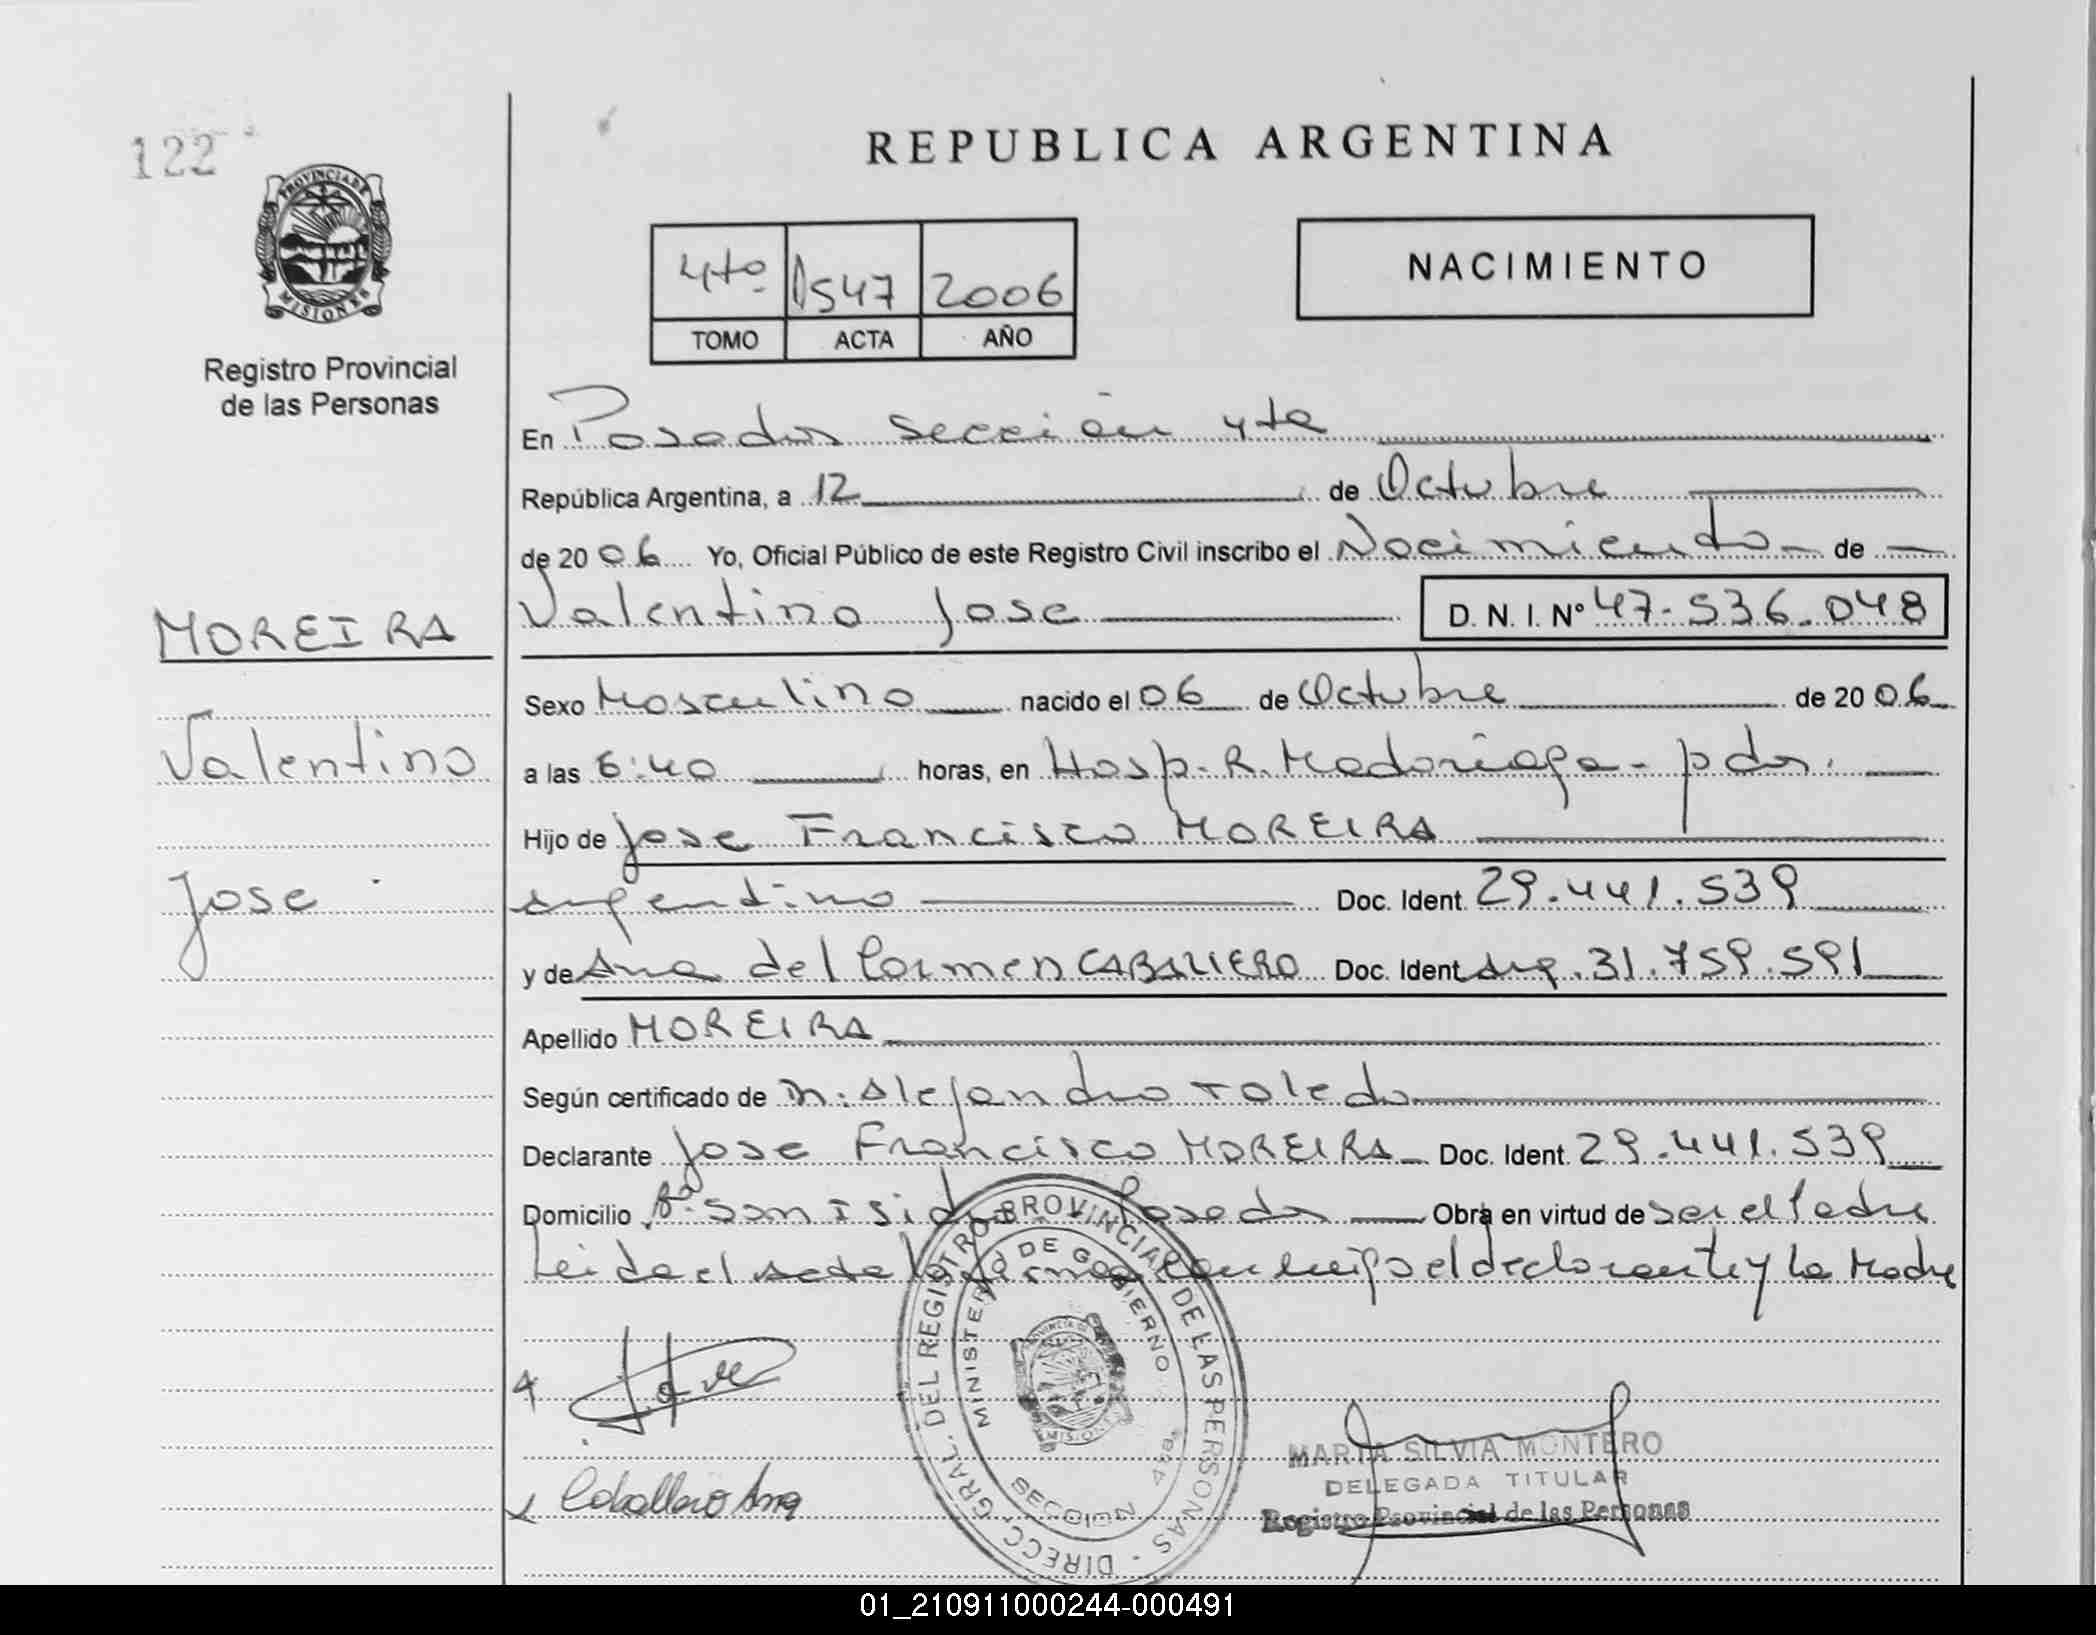 122
REPUBLICA ARGENTINA
PROVINCIA DE
MISIONES
Registro Provincial
de las Personas
4to 1547 2006
TOMO ACTA AÑO
NACIMIENTO
En Posadas sección 4ta
República Argentina, a 12 de Octubre
de 2006 Yo, Oficial Público de este Registro Civil inscribo el Nacimiento de
Valentino Jose D. N. I. Nº 47.536.048
MOREIRA
Valentino
Jose
Sexo Masculino nacido el 06 de Octubre de 2006
a las 6:40 horas, en Hosp. R. Madariaga - pdas.
Hijo de Jose Francisco MOREIRA
argentino Doc. Ident. 29.441.539
y de Ana del Carmen CABALLERO Doc. Ident Arg. 31.759.591
Apellido MOREIRA
Según certificado de m. Alejandro Toledo
Declarante Jose Francisco MOREIRA Doc. Ident. 29.441.539
Domicilio Bº San Isidro Posadas Obra en virtud de ser el Padre
Leida el acta firman conmigo el declarante y la Madre
DIRECC. GRAL. DEL REGISTRO PROVINCIAL DE LAS PERSONAS
MINISTERIO DE GOBIERNO
PROVINCIA DE
MISIONES
SECCION 4ta
Caballero Ana
MARTA SILVIA MONTERO
DELEGADA TITULAR
Registro Provincial de las Personas
01_210911000244-000491